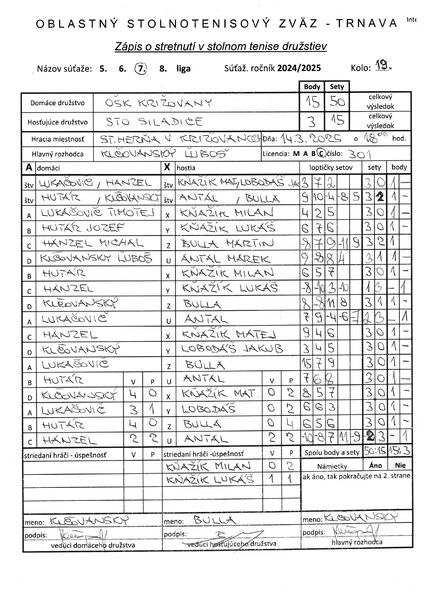 OBLASTNÝ STOLNOTENISOVÝ ZVÄZ - TRNAVA
Zápis o stretnutí v stolnom tenise družstiev
Názov súťaže: 5. 6. 7. 8. liga Súťaž. ročník 2024/2025 Kolo: 19.
Body Sety
Domáce družstvo OŠK KRIŽOVANY 15 50 celkový výsledok
Hosťujúce družstvo STO SILADICE 3 15 celkový výsledok
Hracia miestnosť ST. HERŇA V KRIŽOVANOCH Dňa: 14.3.2025 o 18:00 hod.
Hlavný rozhodca KLČOVANSKÝ ĽUBOŠ Licencia: M A B C číslo: 301
A domáci X hostia loptičky setov sety body
štv LUKAČOVIČ, HANZEL štv KŇAŽÍK MAT, LOBODÁŠ JA 3 7 2 3 0 1 -
štv HUTÁR, KLČOVANSKÝ štv ANTAL, BULLA 9 10 -4 -8 5 3 2 1 -
A LUKAČOVIČ TIMOTEJ X KŇAŽÍK MILAN 4 2 5 3 0 1 -
B HUTÁR JOZEF Y KŇAŽÍK LUKÁŠ 6 7 6 3 0 1 -
C HANZEL MICHAL Z BULLA MARTIN 8 -7 9 -11 9 3 2 1
D KLČOVANSKÝ ĽUBOŠ U ANTAL MAREK 9 -8 8 4 3 1 1 -
B HUTÁR X KŇAŽÍK MILAN 6 5 7 3 0 1 -
C HANZEL Y KŇAŽÍK LUKÁŠ -8 -10 3 -10 1 3 - 1
D KLČOVANSKÝ Z BULLA 8 -8 11 8 3 1 1 -
A LUKAČOVIČ U ANTAL 7 9 -4 -6 -7 2 3 - 1
C HANZEL X KŇAŽÍK MATEJ 9 4 6 3 0 1 -
D KLČOVANSKÝ Y LOBODÁŠ JAKUB 3 4 5 3 0 1 -
A LUKAČOVIČ Z BULLA 15 7 9 3 0 1 -
B HUTÁR V P U ANTAL V P 7 6 8 3 0 1 -
D KLČOVANSKÝ 4 0 X KŇAŽÍK MAT. 0 2 8 5 7 3 0 1 -
A LUKAČOVIČ 3 1 Y LOBODÁŠ 0 2 6 6 3 3 0 1 -
B HUTÁR 4 0 Z BULLA 0 4 6 5 8 3 0 1 -
C HANZEL 2 2 U ANTAL 2 2 -10 -8 7 11 -9 2 3 - 1
striedaní hráči - úspešnosť striedaní hráči - úspešnosť Spolu body a sety 50:15 15:3
KŇAŽÍK MILAN 0 2 Námietky Áno Nie
KŇAŽÍK LUKÁŠ 1 1 ak áno, tak pokračujte na 2. strane
meno: KLČOVANSKÝ meno: BULLA meno: KLČOVANSKÝ
podpis: podpis: podpis:
vedúci domáceho družstva vedúci hosťujúceho družstva hlavný rozhodca